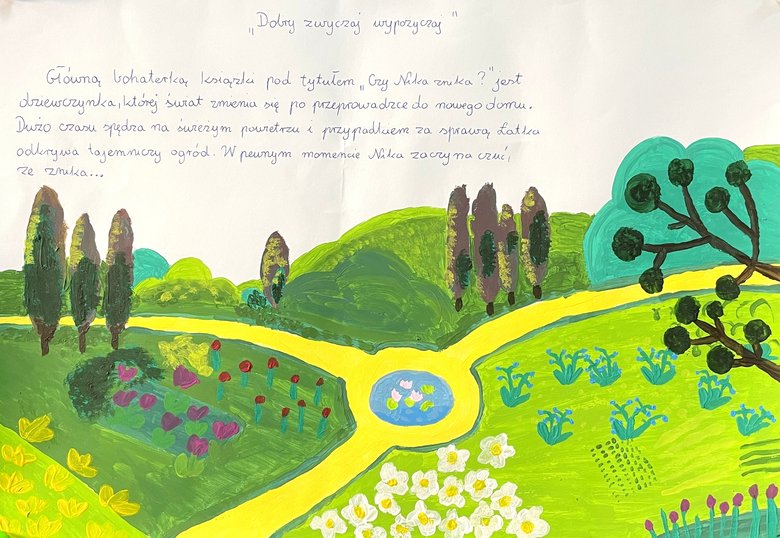 „Dobry zwyczaj wypożyczaj"
Główną bohaterką książki pod tytułem „Czy Nika znika?" jest
dziewczynka, której świat zmienia się po przeprowadzce do nowego domu.
Dużo czasu spędza na świeżym powietrzu i przypadkiem za sprawą Łatka
odkrywa tajemniczy ogród. W pewnym momencie Nika zaczyna czuć,
że znika...